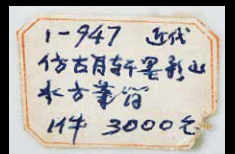 1-947 近代
仿古月轩墨彩山
水方笔筒
1件 3000元